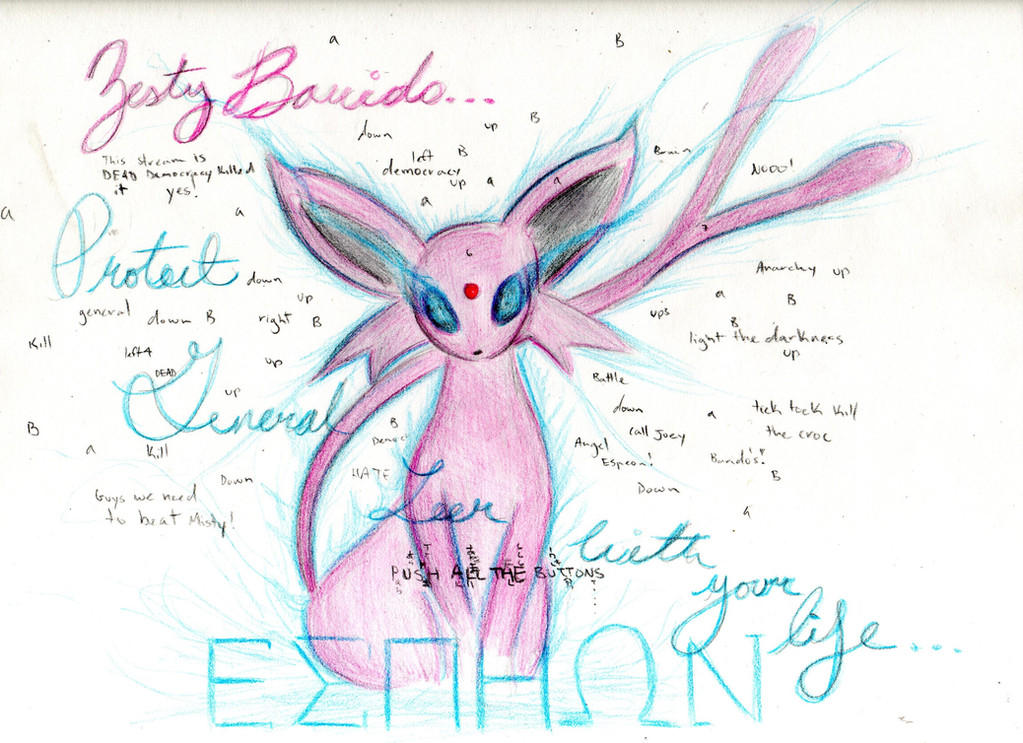 a
B
Zesty Barrido...
down
up
B
left
B
democracy
up
a
a
a
Brain
NOOO!
This stream is
DEAD Democracy killed
it yes!
a
a
7
6
Protect
down
up
general
down B
right B
Anarchy up
a
B
ups
B
light the darkness
up
Kill
left 4
DEAD
up
up
General
Battle
down
a
tick tock kill
the croc
call Joey
B
B
a
Kill
Democ
Angel
Espeon!
Barido's!
B
HATE
Down
Down
Guys we need
to beat Misty!
a
Leer
with
your
life...
PUSH ALL THE BUTTONS
ΕΣΠΗΩΝ